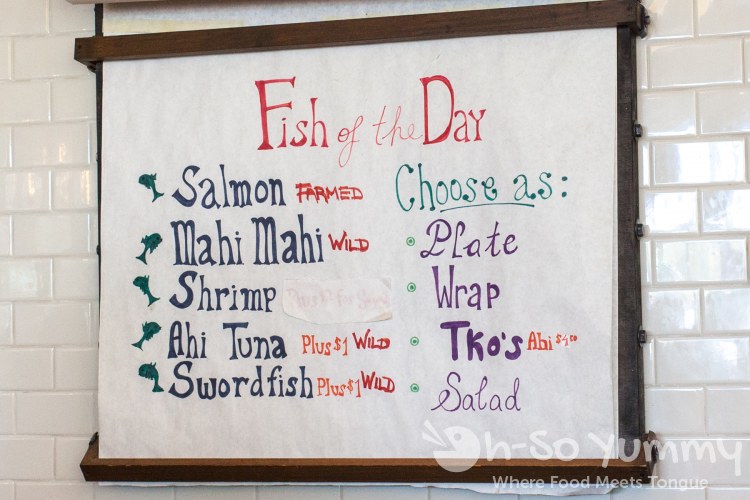 Fish of the Day
Salmon FARMED
Mahi Mahi WILD
Shrimp
Ahi Tuna Plus $1 WILD
Swordfish Plus $1 WILD
Choose as:
Plate
Wrap
Tko's Ahi
Salad
Oh-So Yummy
Where Food Meets Tongue